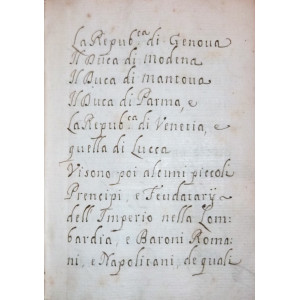 La Repub.ca di Genoua
Il Duca di Modena
Il Duca di Mantoua
Il Duca di Parma, e
La Repub.ca di Venetia, e
quella di Lucca
Visono poi alcuni piccoli
Prencipi, e Feudatarÿ
dell'Imperio nella Lom=
bardia, e Baroni Roma=
ni, e Napolitani, de quali